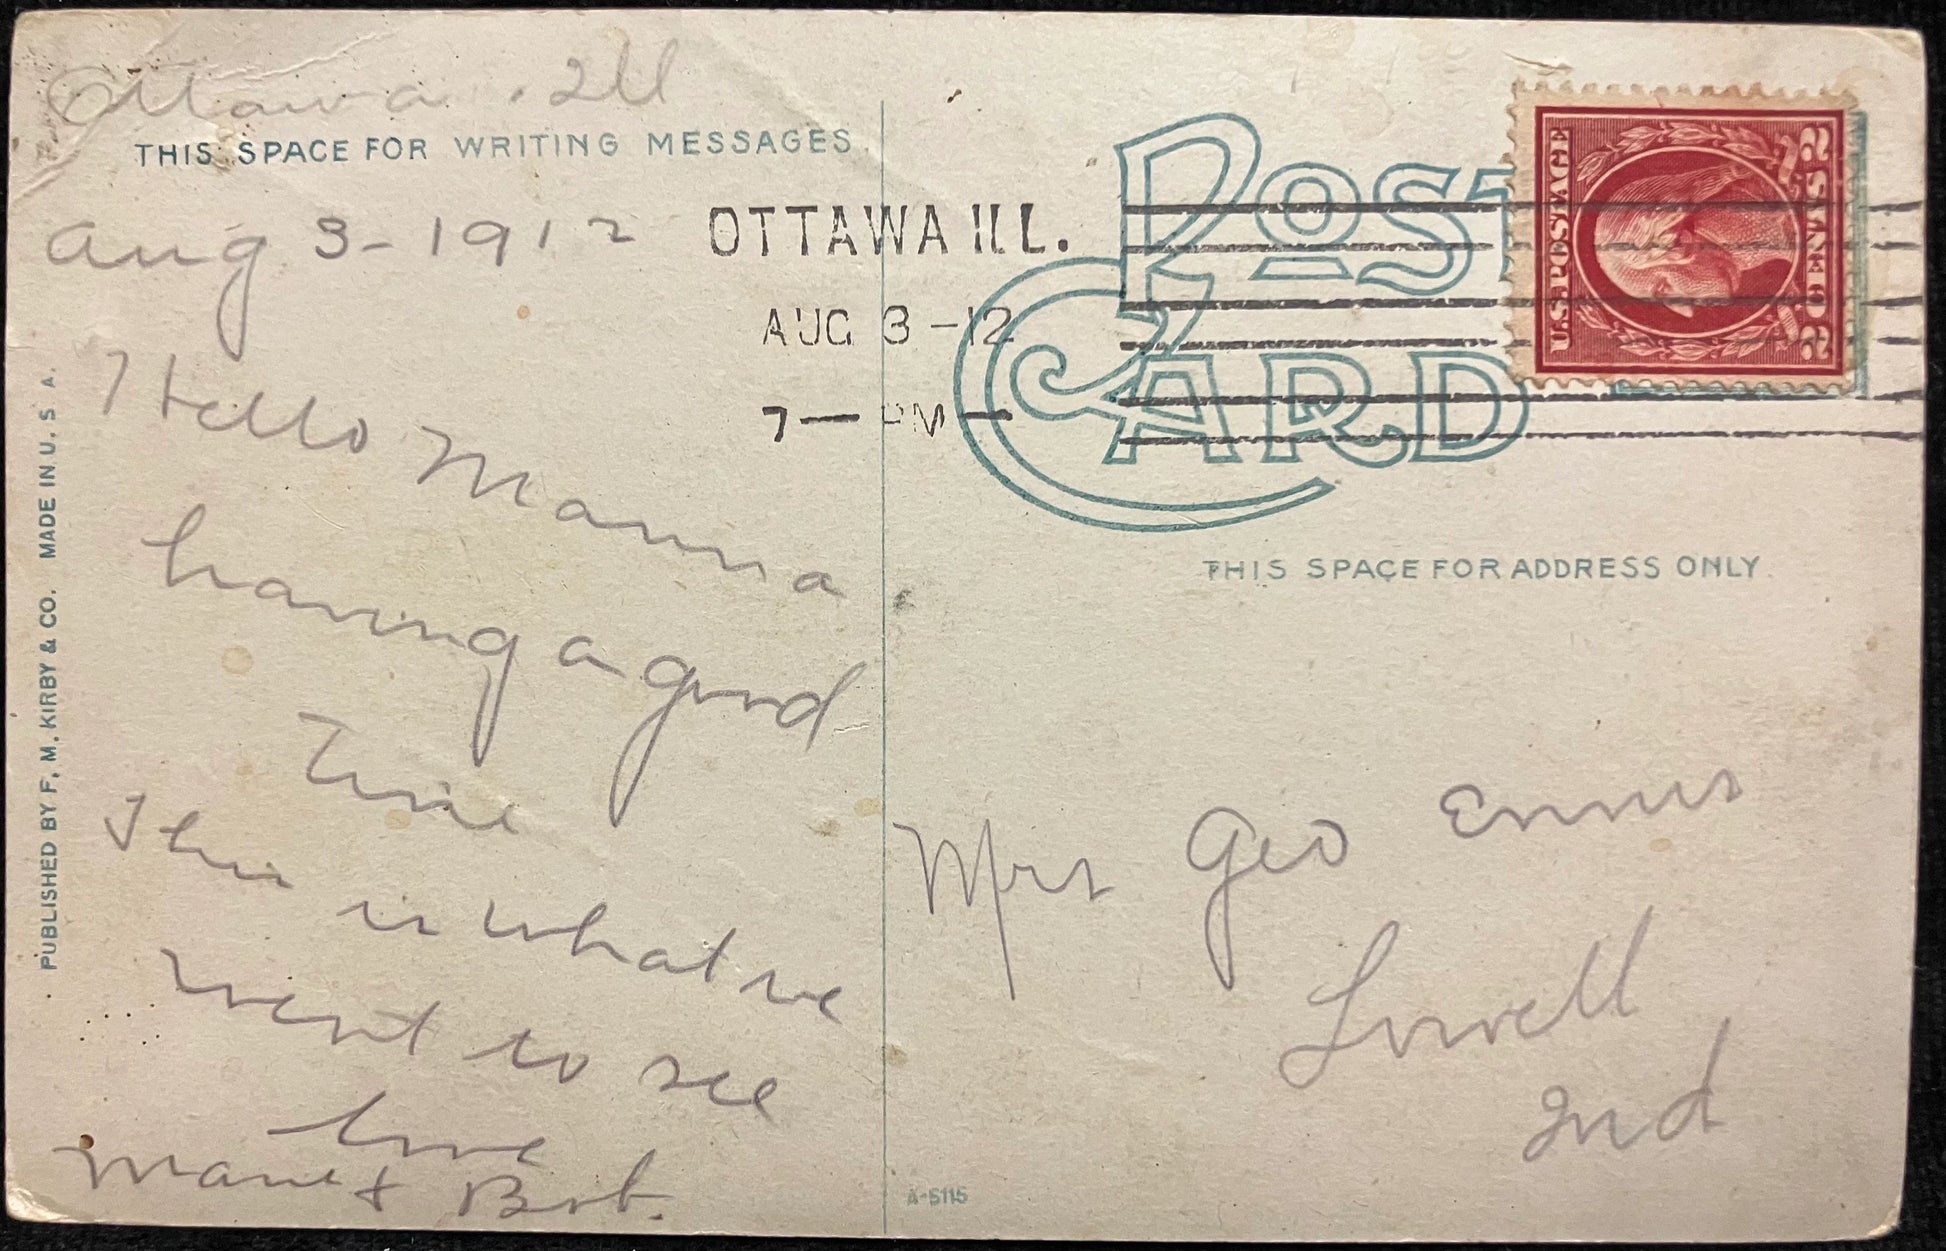 Ottawa . Ill
THIS SPACE FOR WRITING MESSAGES
Aug 3 - 1912
Hello Mamma
having a good
Time
This is what we
went to see
love
& Bob.
PUBLISHED BY F. M. KIRBY & CO. MADE IN U. S. A.
OTTAWA ILL.
AUG 3 -12
7 — PM —
POST
CARD
U.S. POSTAGE
2 CENTS 2
THIS SPACE FOR ADDRESS ONLY
Mrs Geo Ennis
Lowell
Ind
A-5115